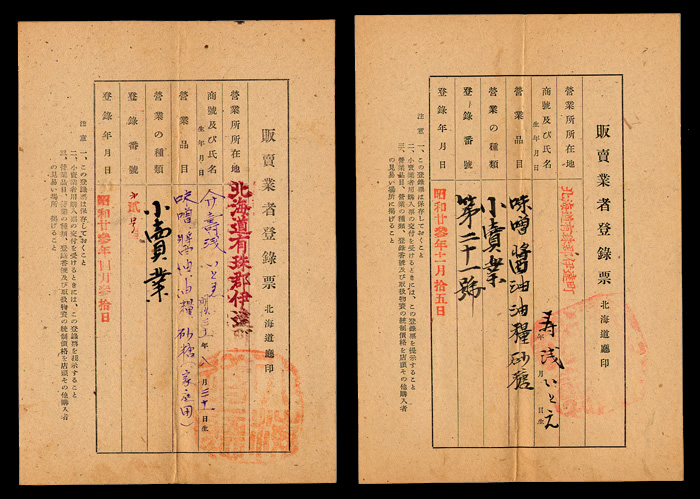 販賣業者登錄票 北海道廳印
營業所所在地 北海道有珠郡伊達
商號及び氏名 寿浅いとえ
生年月日 年 月 日生
營業品目 味噌、醤油油糧 砂糖(家庭用)
營業の種類 小賣業
登錄番號
登錄年月日 昭和廿參年 月參拾日
注意 一、この登錄票は保存しておくこと
二、小賣業者用購入票の交付を受けるときには、この登錄票を提示すること
三、營業品目、營業の種類、登錄番號及び取扱物資の統制價格を店頭その他購入者
の見易い場所に揭げること
販賣業者登錄票 北海道廳印
營業所所在地 北海道有珠郡伊達町
商號及び氏名 寿浅いとえ
生年月日 年 月 日生
營業品目 味噌醤油油糧砂糖
營業の種類 小賣業
登錄番號 第二十一號
登錄年月日 昭和廿參年十二月拾五日
注意 一、この登錄票は保存しておくこと
二、小賣業者用購入票の交付を受けるときには、この登錄票を提示すること
三、營業品目、營業の種類、登錄番號及び取扱物資の統制價格を店頭その他購入者
の見易い場所に揭げること